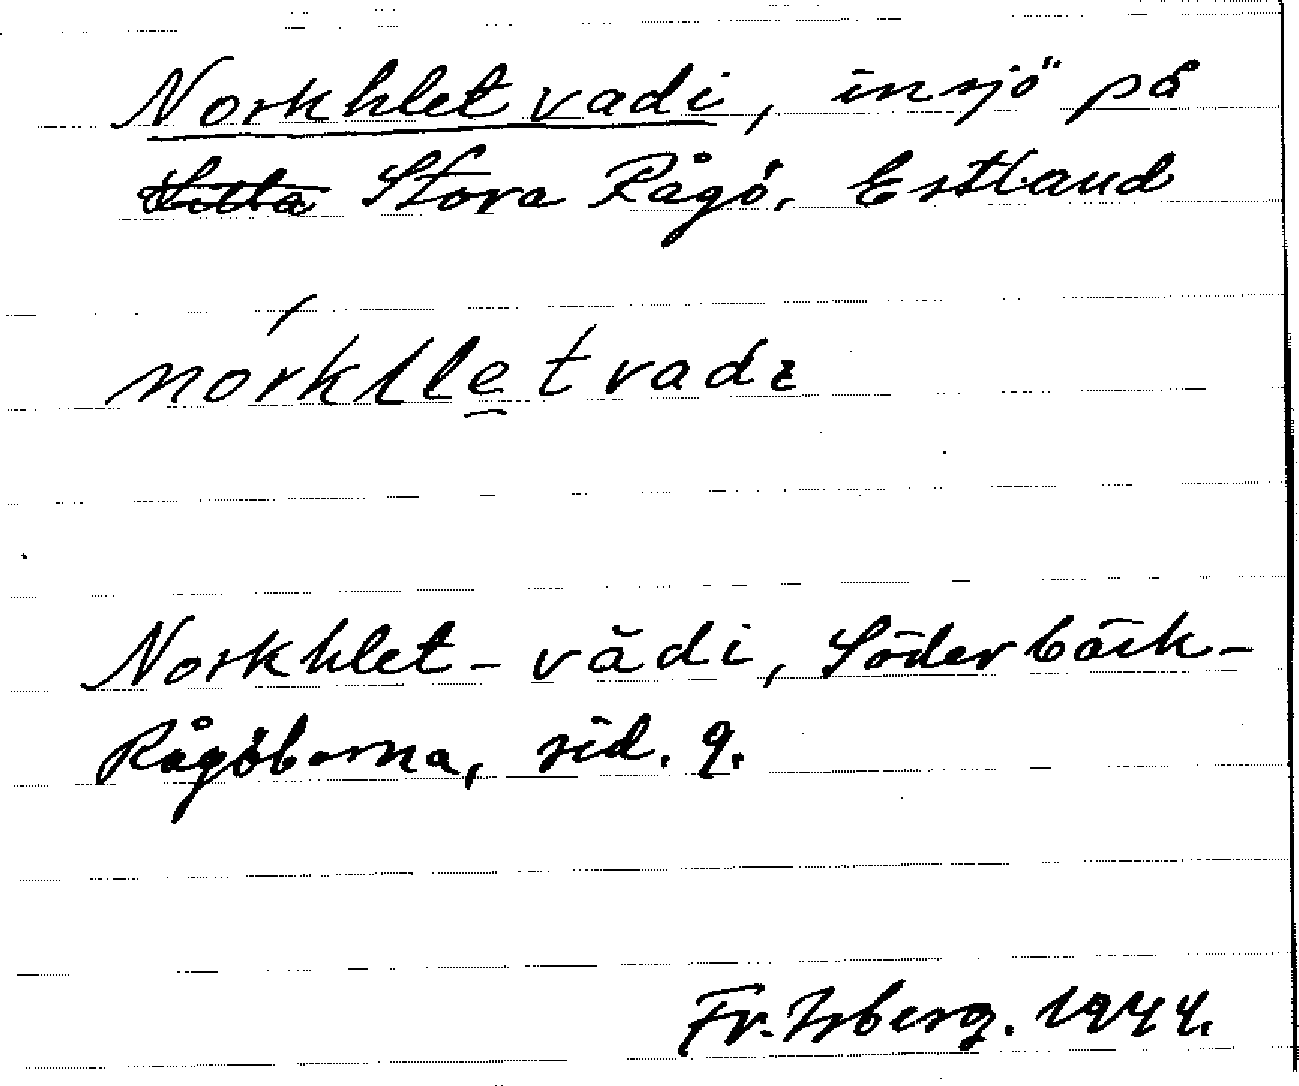 Norkhlet vadi, insjö på
Stora Rågö, Estland
norkllet vadi
Norkhlet-vädi, Söderbäck-
Rågöborna, sid. 9.
Fr. Isberg. 1944.